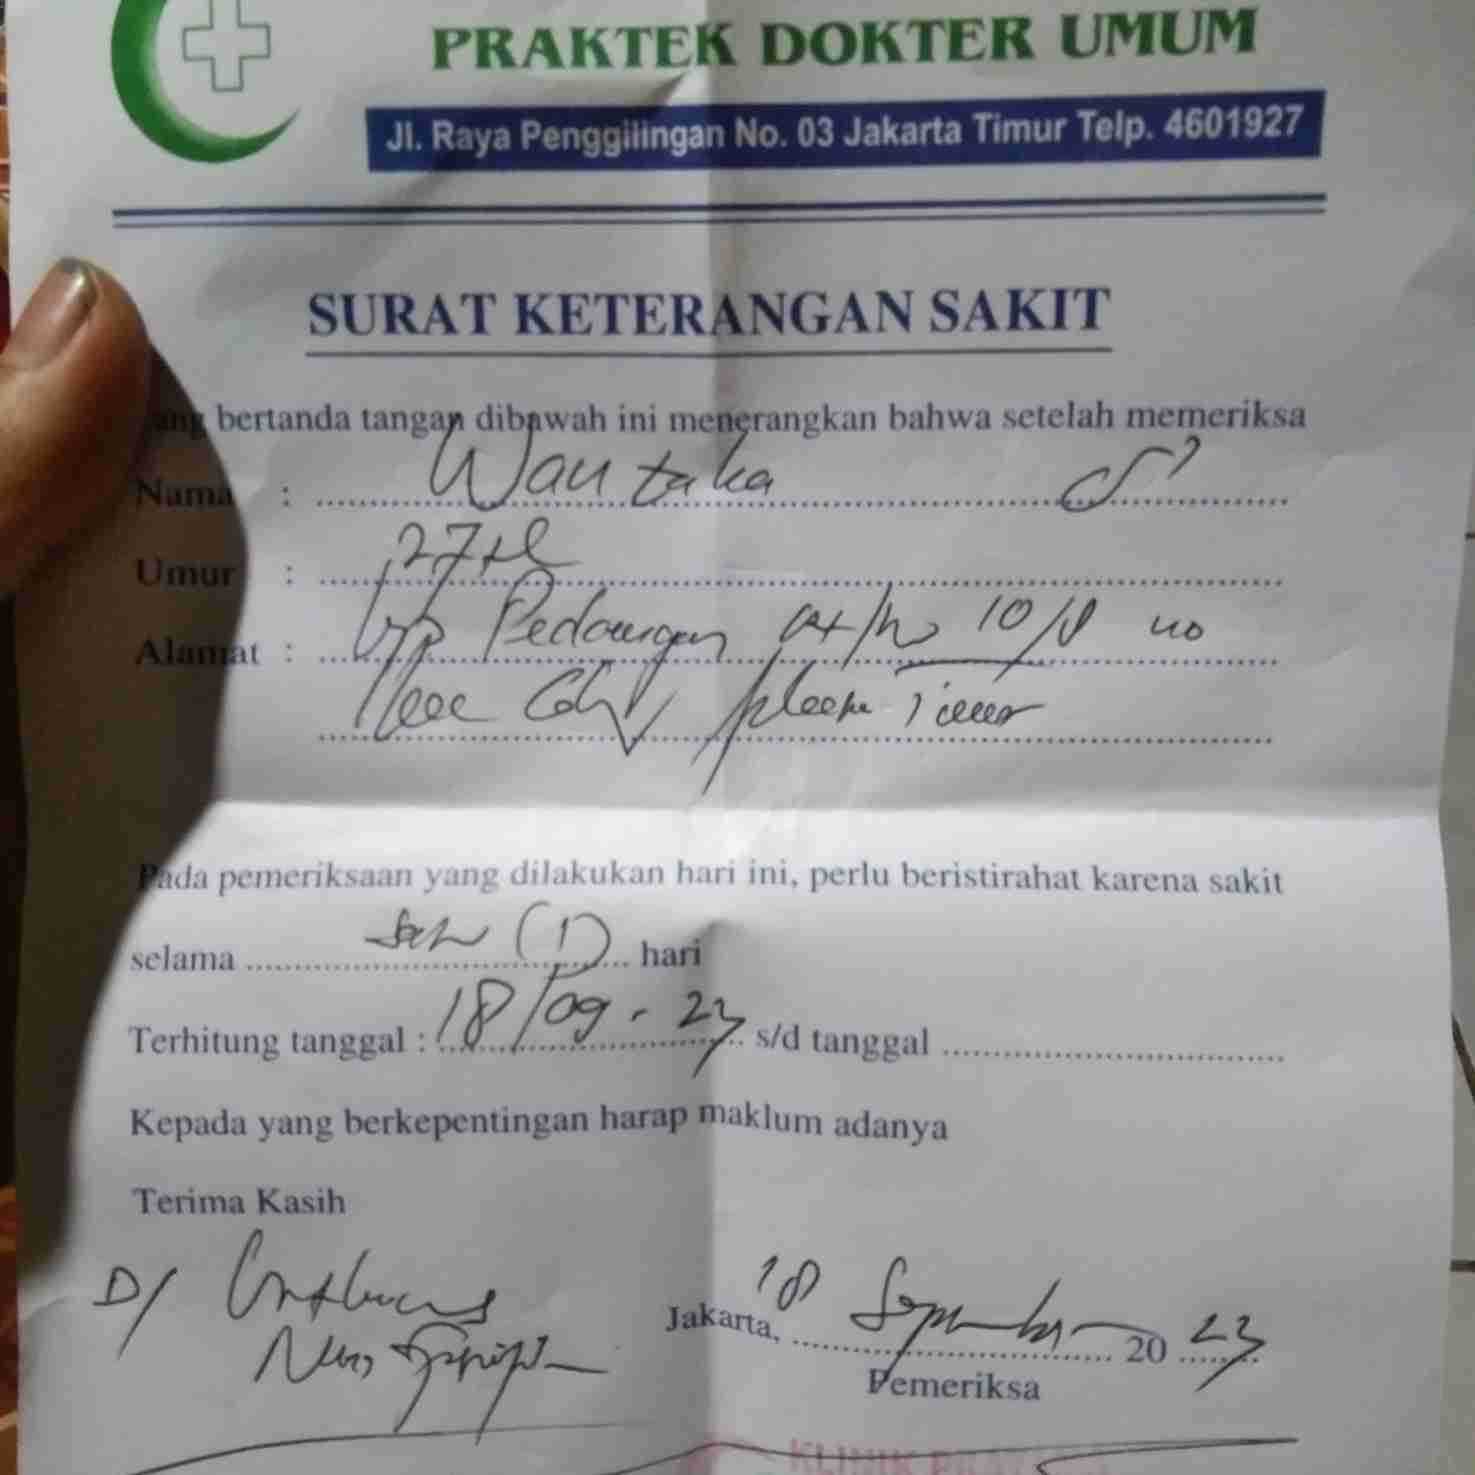 PRAKTEK DOKTER UMUM
Jl. Raya Penggilingan No. 03 Jakarta Timur Telp. 4601927
SURAT KETERANGAN SAKIT
ang bertanda tangan dibawah ini menerangkan bahwa setelah memeriksa
Nama :
Umur : 27 th
Alamat : 10/8 no
Timur
Pada pemeriksaan yang dilakukan hari ini, perlu beristirahat karena sakit
selama satu (1) hari
Terhitung tanggal : 18/09-23 s/d tanggal
Kepada yang berkepentingan harap maklum adanya
Terima Kasih
D/
Jakarta, 18 September 20 23
Pemeriksa
KLINIK